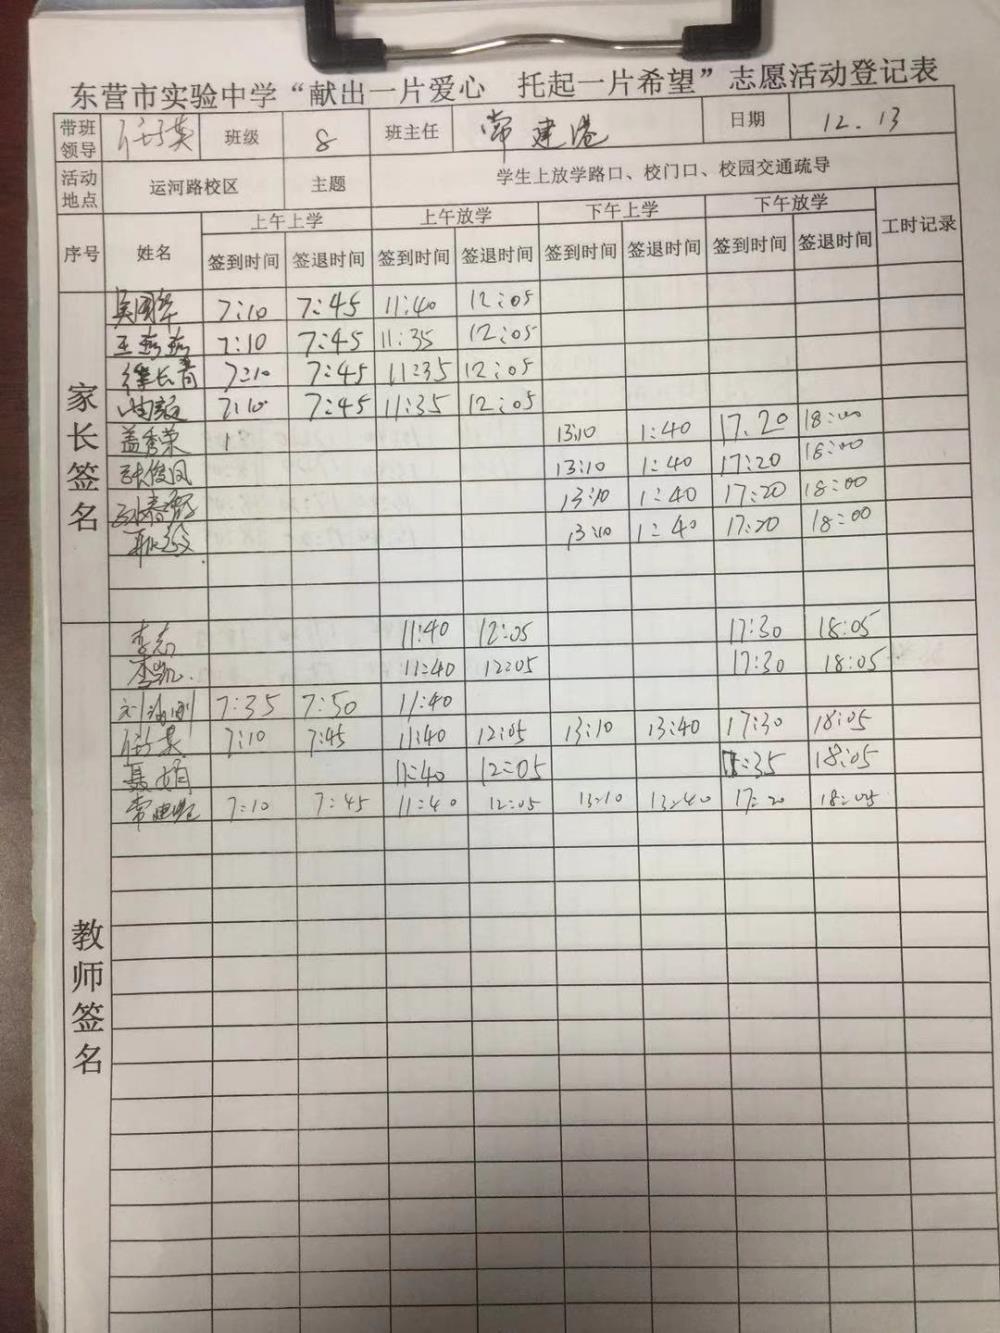 东营市实验中学“献出一片爱心 托起一片希望”志愿活动登记表
带班领导 班级 8 班主任 常建港 日期 12.13
活动地点 运河路校区 主题 学生上放学路口、校门口、校园交通疏导
序号 姓名 上午上学 上午放学 下午上学 下午放学 工时记录
签到时间 签退时间 签到时间 签退时间 签到时间 签退时间 签到时间 签退时间
家长签名
吴国华 7:10 7:45 11:40 12:05
7:10 7:45 11:35 12:05
徐长青 7:10 7:45 11:35 12:05
7:10 7:45 11:35 12:05
盖秀荣 13:10 1:40 17.20 18:00
张俊凤 13:10 1:40 17:20 18:00
13:10 1:40 17:20 18:00
13:10 1:40 17:20 18:00
教师签名
李志 11:40 12:05 17:30 18:05
李凯 11:40 12:05 17:30 18:05
7:35 7:50 11:40
7:10 7:45 11:40 12:05 13:10 13:40 17:30 18:05
聂娟 11:40 12:05 :35 18:05
常建港 7:10 7:45 11:40 12:05 13:10 13:40 17:20 18:05